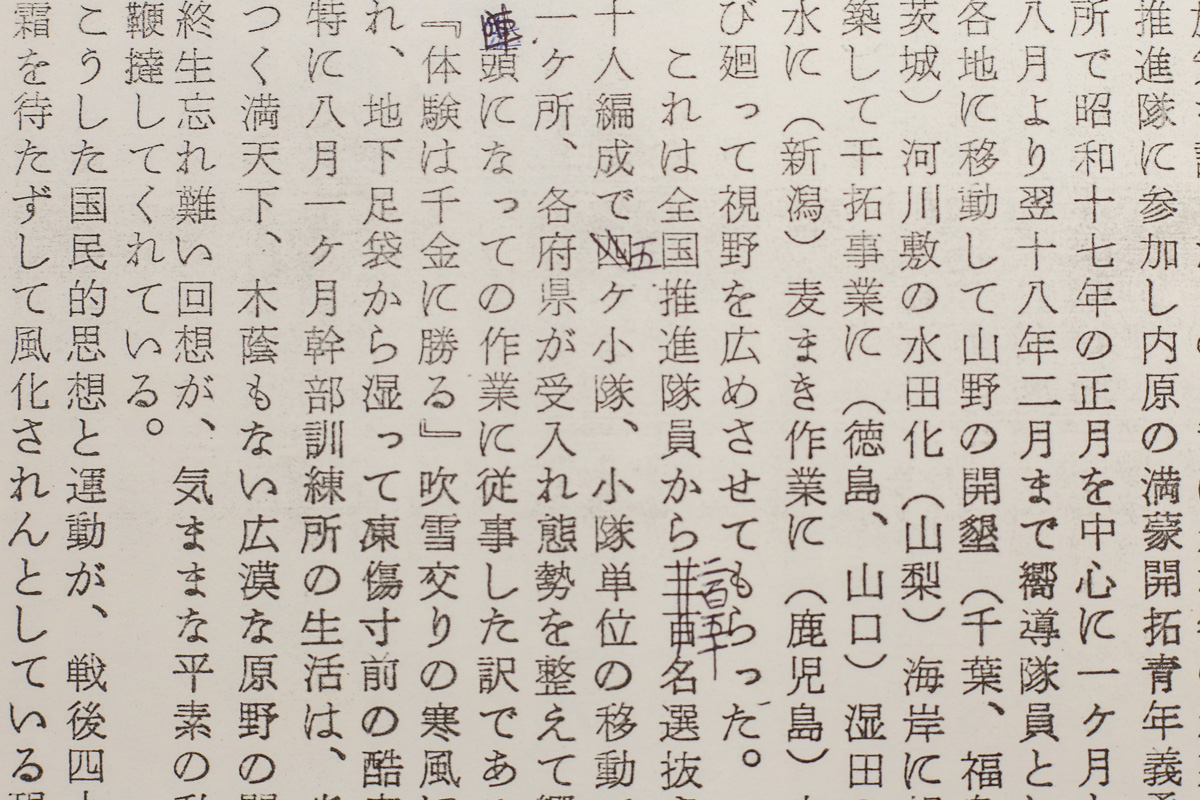 推進隊に参加し内原の満蒙開拓青年義
所で昭和十七年の正月を中心に一ケ月
八月より翌十八年二月まで嚮導隊員と
各地に移動して山野の開墾（千葉、福
茨城）河川敷の水田化（山梨）海岸に
築して干拓事業に（徳島、山口）湿田
水に（新潟）麦まき作業に（鹿児島）
び廻って視野を広めさせてもらった。
これは全国推進隊員から二百五十名選抜
十人編成で五ケ小隊、小隊単位の移動
一ケ所、各府県が受入れ態勢を整えて
陣頭になっての作業に従事した訳であ
『体験は千金に勝る』吹雪交りの寒風
れ、地下足袋から湿って凍傷寸前の酷
特に八月一ケ月幹部訓練所の生活は、
つく満天下、木蔭もない広漠な原野の
終生忘れ難い回想が、気ままな平素の
鞭撻してくれている。
こうした国民的思想と運動が、戦後四
霜を待たずして風化されんとしている